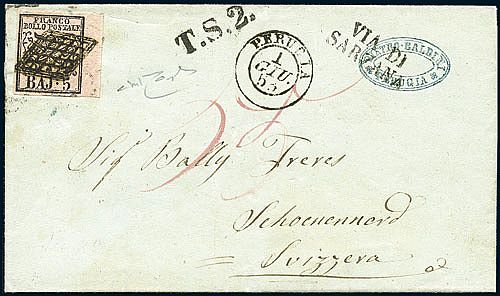 FRANCO
BOLLO POSTALE
BAJ: 5
T.S.2.
PERUGIA
1
GIU.
55
VIA DI
SARZANA
PERUGIA
Sig.ri Bally Freres
Schoenennerd
Svizzera